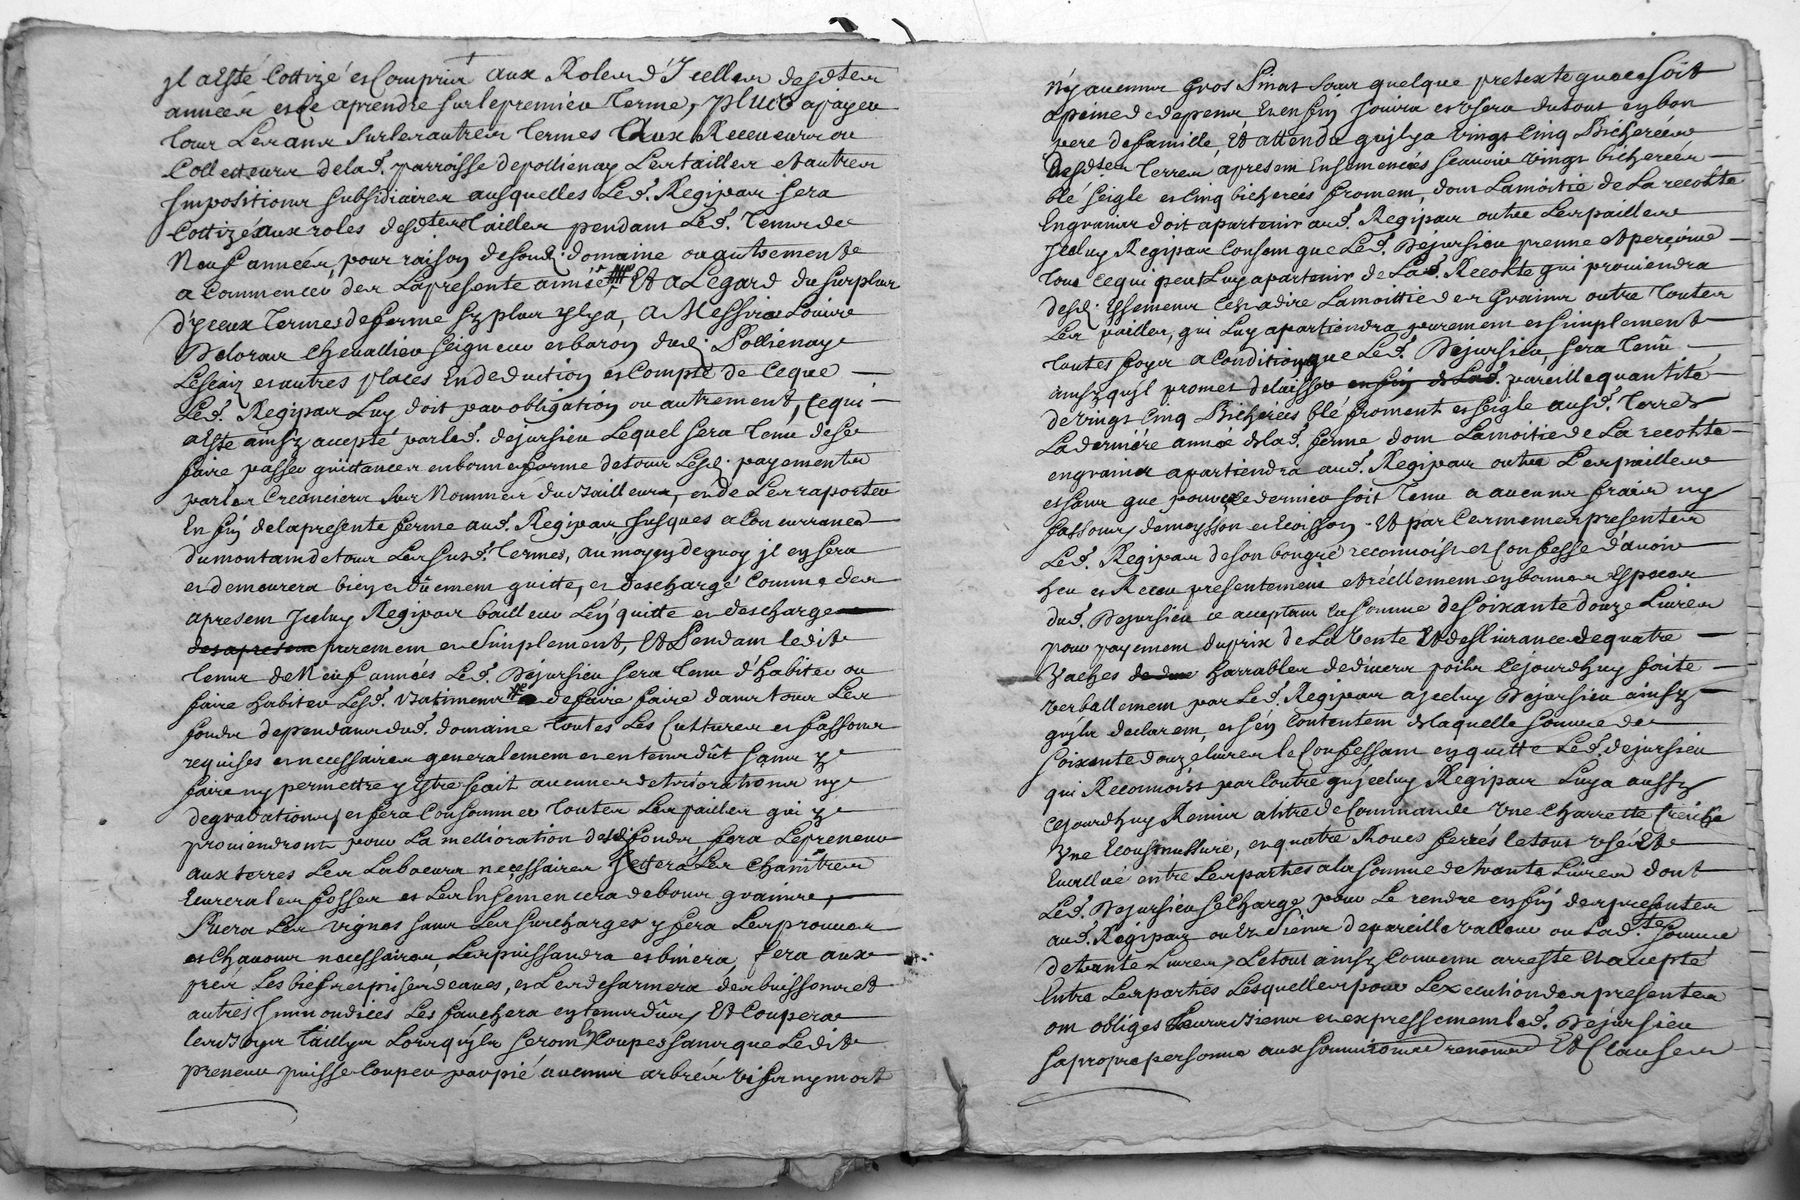 jl aesté Cottizé et Compris aux Roles d'Jcelles desdtes
années et ce aprendre sur le premier terme, plus apayer
tous Les ans sur les autres termes Aux Receveurs ou
Collecteurs de lad. parroisse de pollienay Les tailles et autres
Impositions subsidiaires ausquelles Led. Regipas sera
Cottizé aux roles desdtes tailles pendant Led. tems de
Neuf années, pour raison de sond. domaine ou autrement
a Commencer des La presente année Et a L'egard du surplus
d'yceux termes de ferme sy plus ylya, A Messire Louis
Deloras Chevallier seigneur et baron dud. Pollienay
et autres places En deduction et Compte de Ceque
Led. Regipas Luy doit par obligation ou autrement, Cequi
a esté ainsy accepté par led. dejussieu Lequel sera tenu de se
faire passer quittances en bonne forme de tous Lesd. payements
par les Creanciers sus Nommés du bailleur, et de Les raporter
En fin de la presente ferme aud. Regipas Jusques a Concurrance
du montant de tous Les susd. termes, au moyen dequoy jl en sera
et demeurera bien et dûement quitte, et deschargé Comme des
apresent Jceluy Regipas bailleur L'en quitte et descharge
des apresent purement et simplement, Et Pendant ledit
temps de Neuf années Led. Dejussieu sera tenu d'habiter ou
faire habiter Lesd. Batiments de faire faire dans tous Les
fonds dependans dud. domaine toutes Les Cultures et fassons
requises et necessaires generalement et en tems dût sans y
faire ny permettre y estre fait aucunes deteriorations ny
degradations, et fera Consommer toutes Les pailles qui y
proviendront pour La mellioration desd. fonds, fera Le preneur
aux terres Les Labeurs necessaires Jettera Les Chaintres
Curera les fosses et Les Ensemencera de bons grains,
fuera Les vignes sans Les surcharger y fera Les provins
et Chavons necessaires, Les puissandra et binera, fera aux
prés Les biefs et prises d'eaues, et Les desarmera des buissons et
autres Jmmondices Les fauchera en tems dûs, Et Coupera
les bois taillys Lorsqu'jls seront En Coupes sans que Ledit
preneur puisse Couper par pié aucuns arbres vifs ny mort
n'y aucuns gros Pinat sous quelque pretexte que ce soit
apeine de depens Et enfin jouira et usera du tout en bon
pere de famille, Et attendu qu'jlya vingt Cinq Bicherées
Desdtes terres apresent Ensemencées scavoir vingt bicherées
blé seigle et Cinq bicherées froment, dont La moitié de La recolte
En grains doit apartenir aud. Regipas outre Les pailles
Jceluy Regipas Consent que Led. Dejussieu prenne et perçoive
tout Cequi peut Luy apartenir de Lad. Recolte qui proviendra
desd. Essemens Cest a dire La moittié des Grains outre toutes
Les pailles, qui Luy apartiendra purement et simplement
toutes foyes a Condition que Led. Dejussieu, sera tenu
ainsy qu'jl promet de laisser en fin de Lad. pareille quantité
de vingt Cinq Bicherées blé froment et seigle ausd. terres
La derniére année de lad. ferme dont La moitié de La recolte
en grains apartiendra aud. Regipas outre Les pailles
et sans que pour Ce dernier soit tenu a aucuns frais ny
fassons de moysson et Et par Ces mêmes presentes
Led. Regipas de son bongré reconnoist et Confesse d'avoir
heu et Receu presentement et réellement en bonnes Especes
dud. Dejussieu ce acceptant La somme de soixante douze Livres
pour payement du prix de La vente Et deslivrance de quatre
Vaches harrables de divers poils Cejourdhuy faite
verballement par Led. Regipas a Jceluy Dejussieu ainsy
qu'jls declarent, et s'en Contentent de laquelle somme de
soixante douze livres le Confessant en quitte Led. dejussieu
qui Reconnoist par Contre qu'jceluy Regipas Luy a aussy
Cejourdhuy Remis a titre de Commande une Charrette freiche
Une et quatre Roues ferrés le tout usé Et
Evalluée entre Les parties a la somme de trante Livres dont
Led. Dejussieu se Charge pour Le rendre en fin des presentes
aud. Regipas ou Es siens de pareille valleur ou Ladte somme
de trante Livres, Le tout ainsy Convenu arresté Et accepté
Entre Les parties Lesquelles pour L'execution des presentes
ont obligés Leurs biens et expressement Led. Dejussieu
sa propre personne aux soumissions renonces Et Clauses